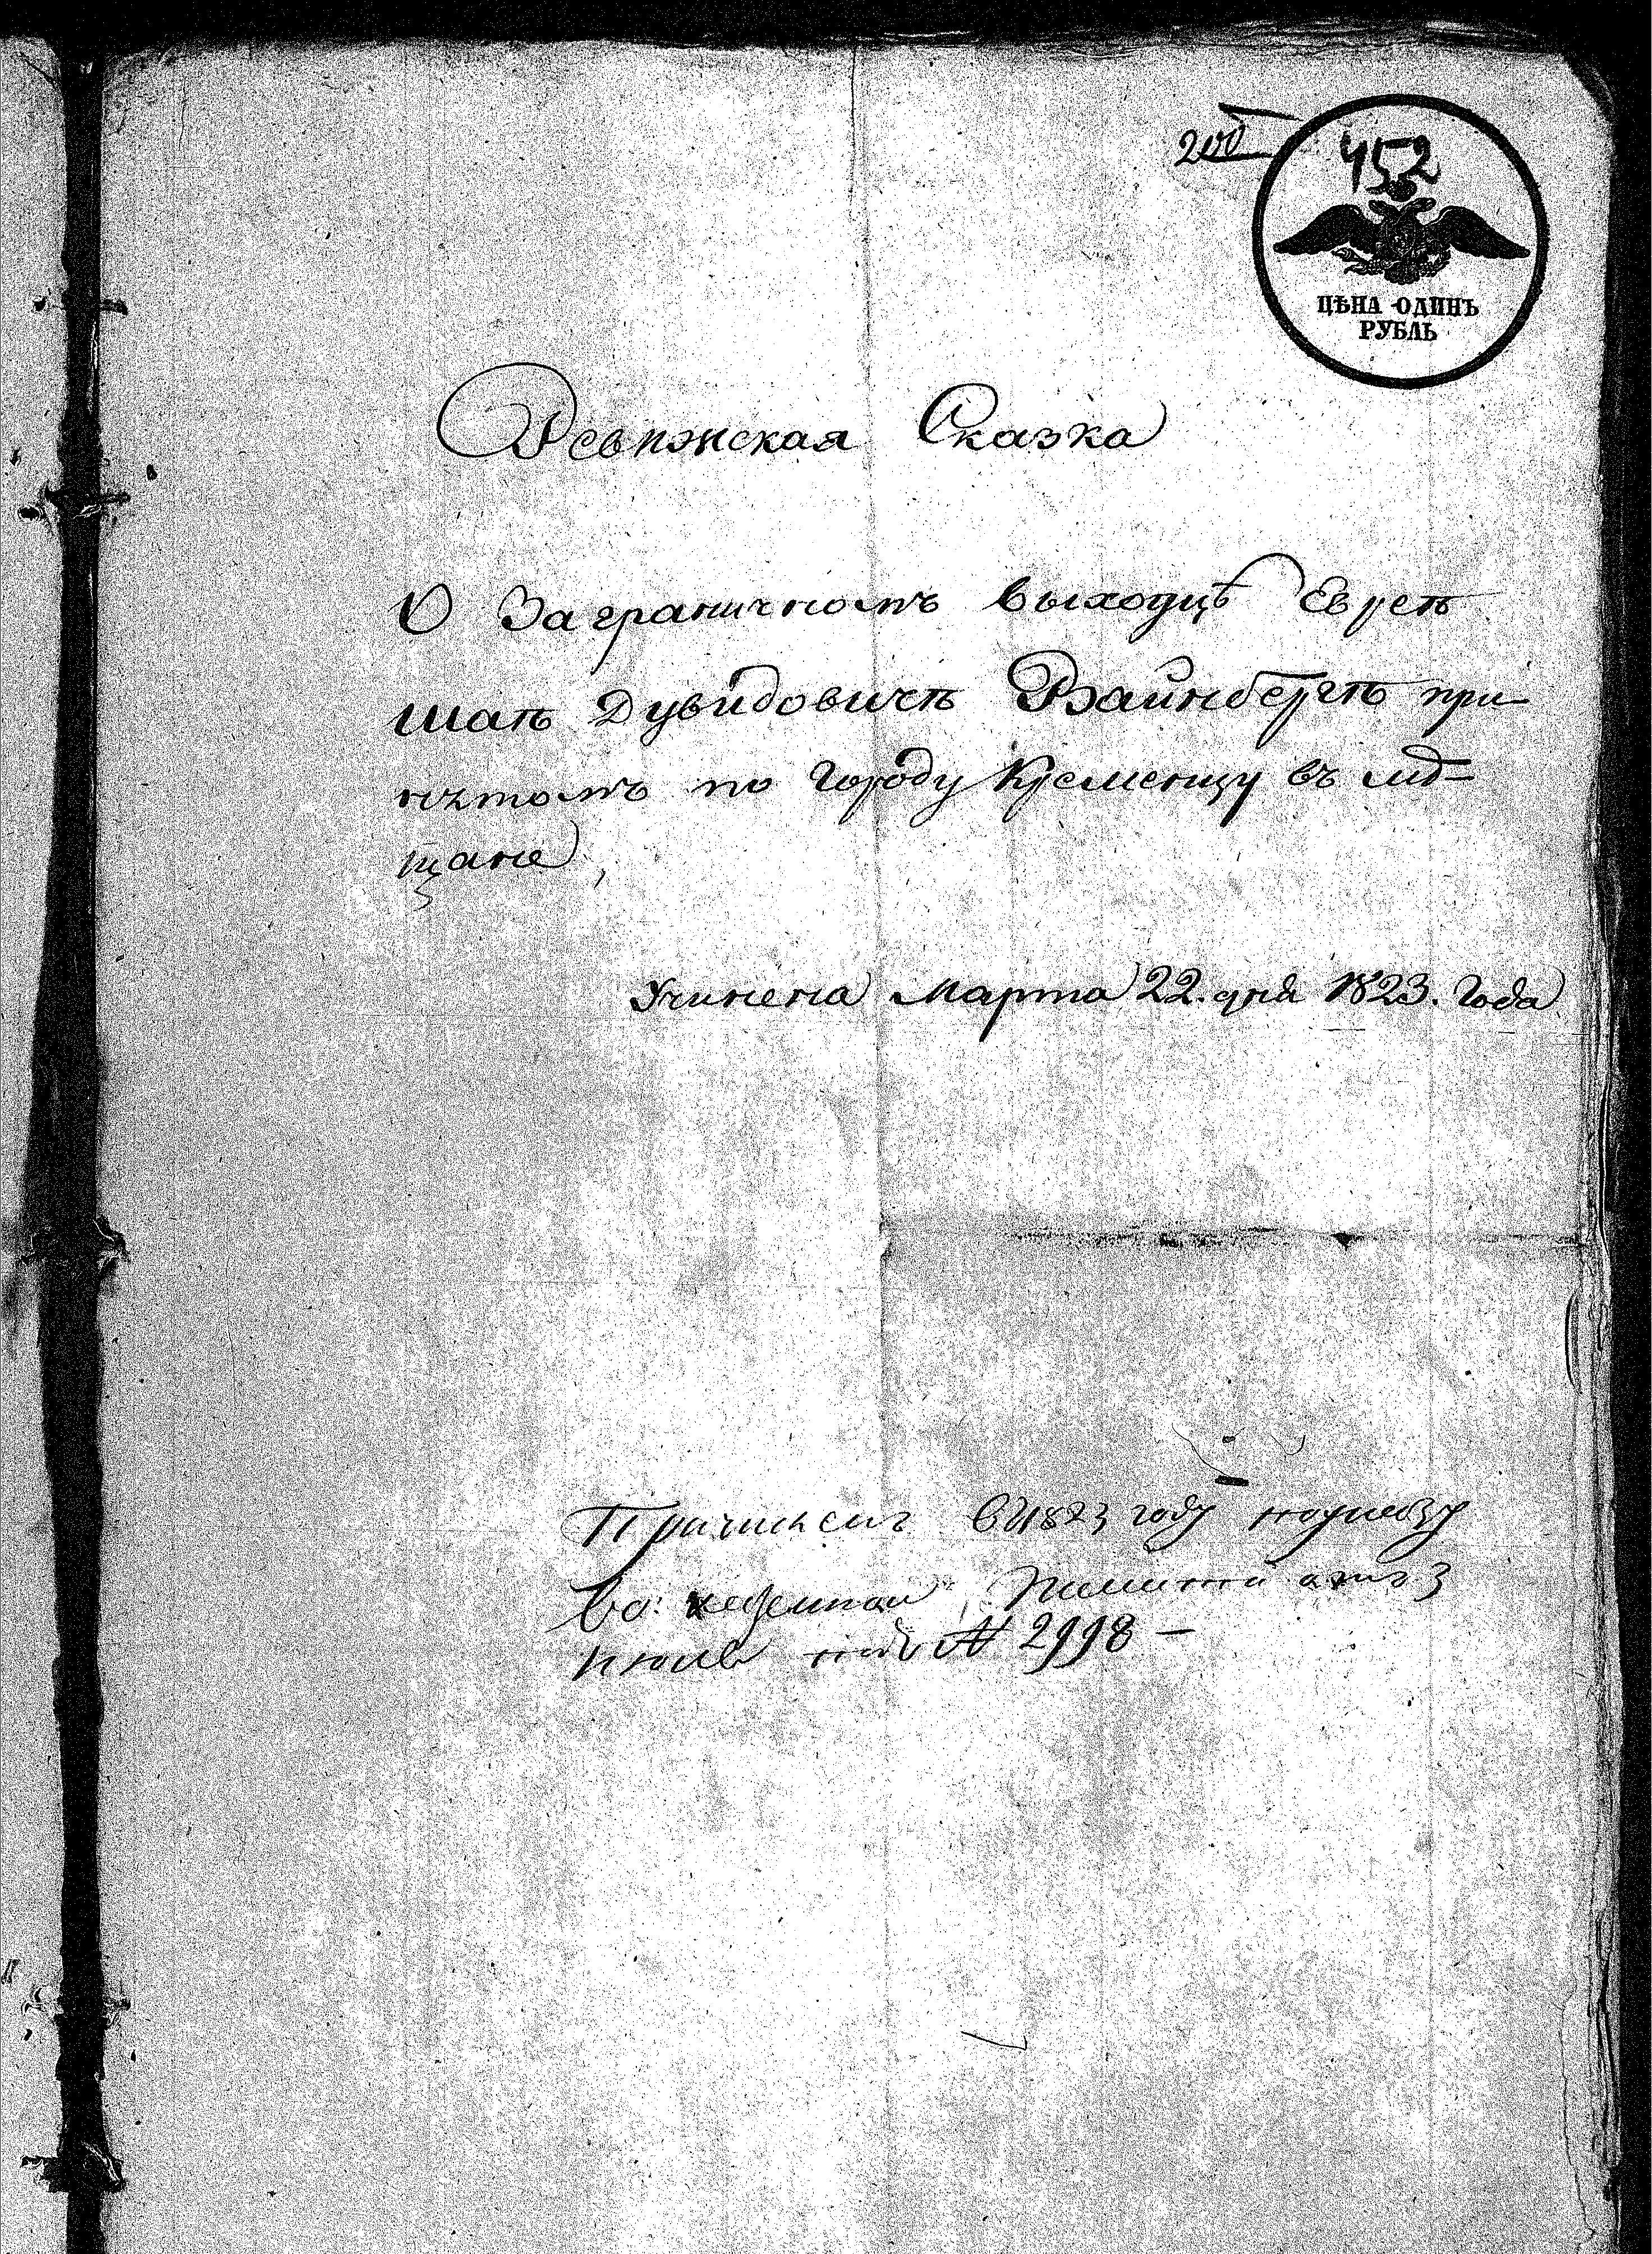 200
452
ЦѢНА ОДИНЪ
РУБЛЬ
Ревизская Сказка
О Заграничномъ выходцѣ Евреѣ
Шаѣ Дувидовичѣ Вайнбергѣ при-
нятомъ по городу Кременцу въ мѣ-
щане
Учинена Марта 22. дня 1823. Года
Причисленъ в 1823 году
во
июля под № 2998 —